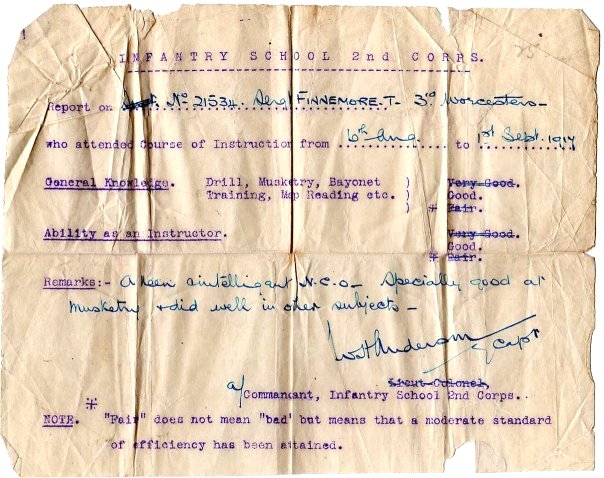 25
INFANTRY SCHOOL 2nd CORPS.
Report on No 21534. Sergt FINNEMORE. T - 3rd Worcesters -
who attended Course of Instruction from 6th Aug to 1st Sept. 1917
General Knowledge. Drill, Musketry, Bayonet ) Very Good.
Training, Map Reading etc. ) Good.
) ‡ Fair.
Ability as an Instructor. Very Good.
Good.
‡ Fair.
Remarks:- A keen & intelligent N.C.O - Specially good at
Musketry & did well in other subjects -
WH Anderson Capt
Lieut-Colonel,
a/ Commandant, Infantry School 2nd Corps.
‡
NOTE. "Fair" does not mean "bad" but means that a moderate standard
of efficiency has been attained.